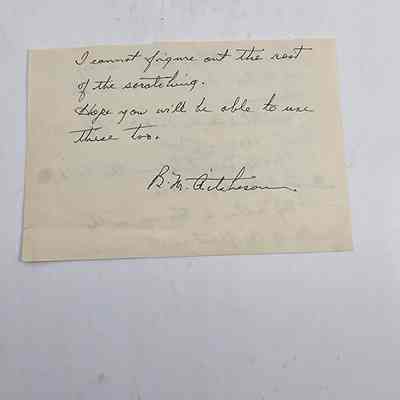 I cannot figure out the rest
of the scratching.
Hope you will be able to use
these too.
B. M. Aitcheson.